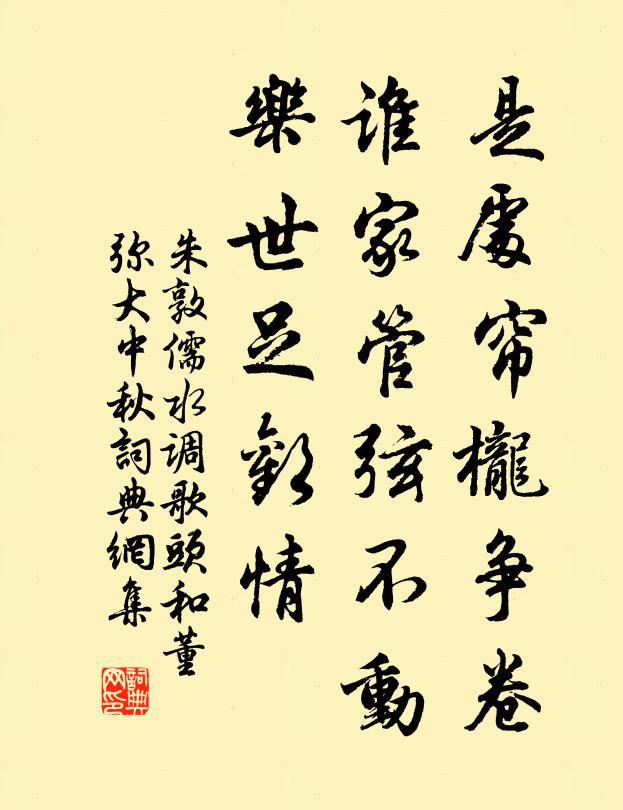 是處帘櫳争卷
谁家管弦不動
樂世足歡情
朱敦儒水调歌頭和董
弥大中秋詞典網集
詞典
网印